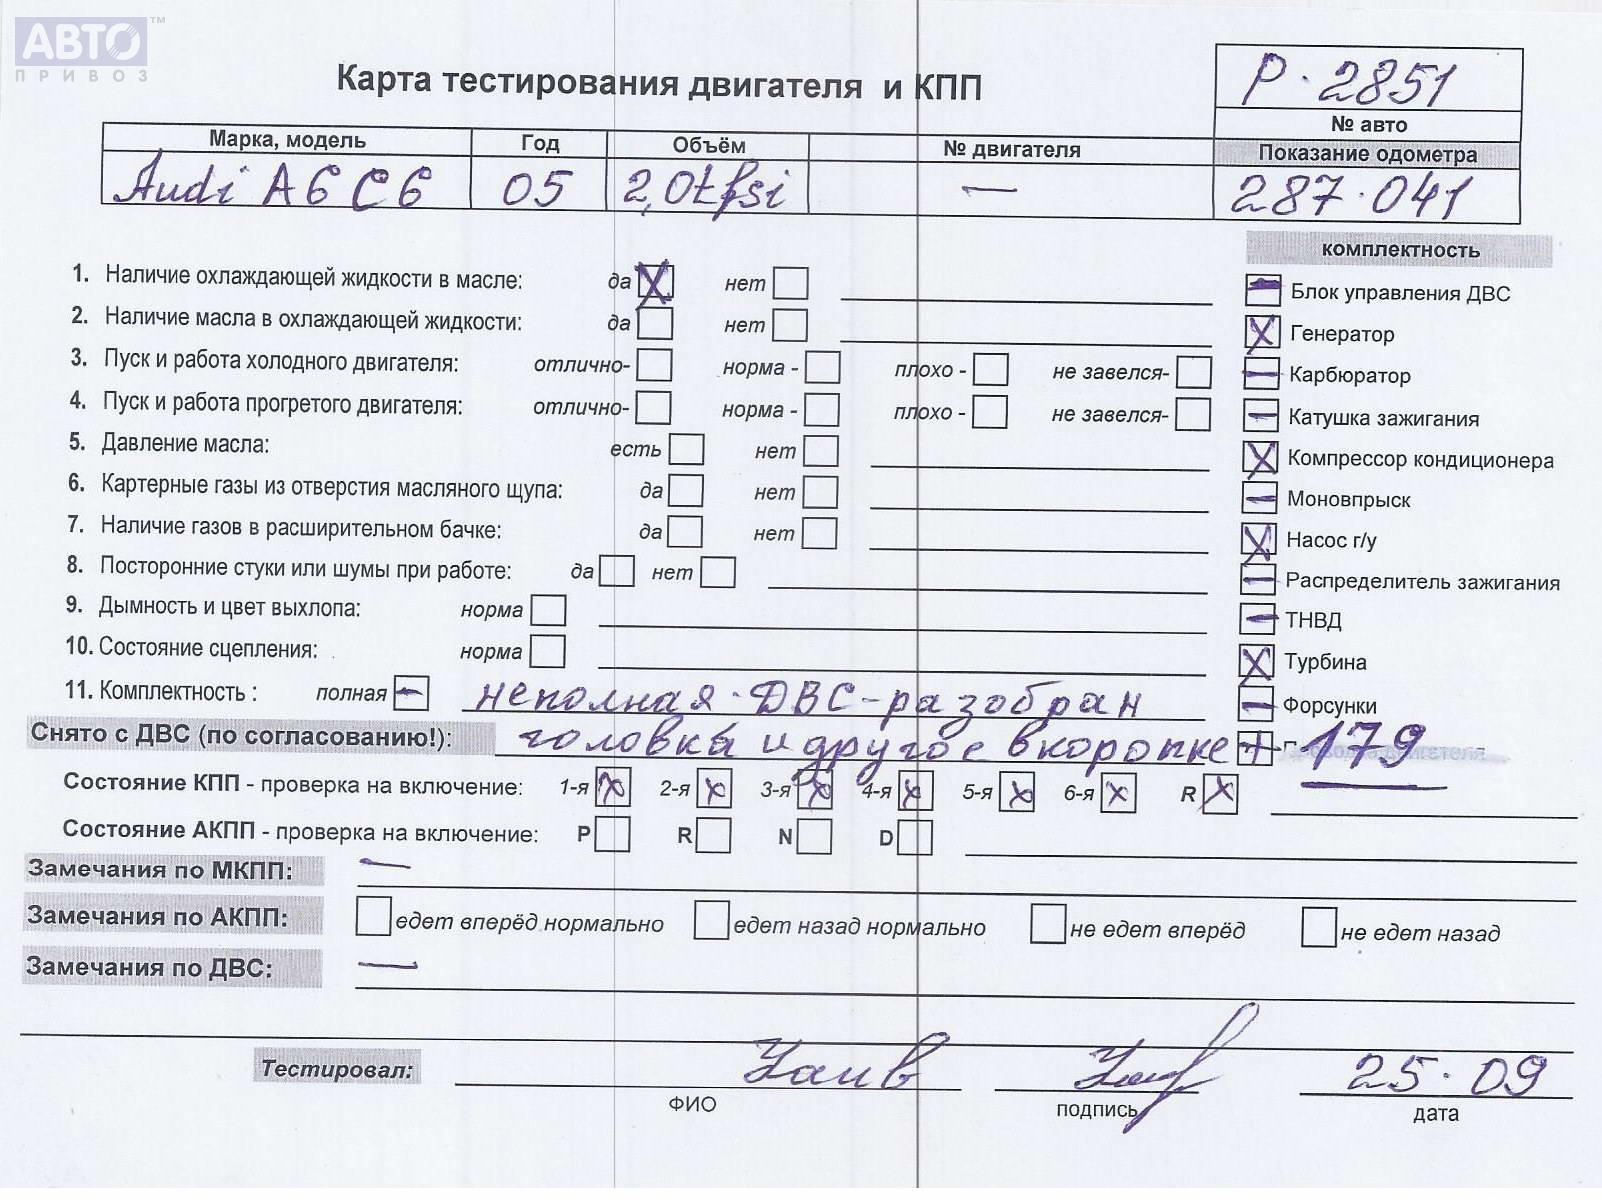 АВТО™
ПРИВОЗ
Карта тестирования двигателя и КПП
Р·2851
№ авто
Марка, модель Год Объём № двигателя Показание одометра
Audi A6 C6 05 2,0tfsi — 287·041
комплектность
1. Наличие охлаждающей жидкости в масле: да X нет Блок управления ДВС
2. Наличие масла в охлаждающей жидкости: да нет X Генератор
3. Пуск и работа холодного двигателя: отлично- норма - плохо - не завелся- — Карбюратор
4. Пуск и работа прогретого двигателя: отлично- норма - плохо - не завелся- — Катушка зажигания
5. Давление масла: есть нет X Компрессор кондиционера
6. Картерные газы из отверстия масляного щупа: да нет — Моновпрыск
7. Наличие газов в расширительном бачке: да нет X Насос г/у
8. Посторонние стуки или шумы при работе: да нет — Распределитель зажигания
9. Дымность и цвет выхлопа: норма — ТНВД
10. Состояние сцепления: норма X Турбина
11. Комплектность : полная — неполная·ДВС-разобран — Форсунки
Снято с ДВС (по согласованию!): головка и другое в коропке + 179
Состояние КПП - проверка на включение: 1-я X 2-я X 3-я X 4-я X 5-я X 6-я X R X
Состояние АКПП - проверка на включение: P R N D
Замечания по МКПП: —
Замечания по АКПП: едет вперёд нормально едет назад нормально не едет вперёд не едет назад
Замечания по ДВС: —
Тестировал: 25·09
ФИО подпись дата